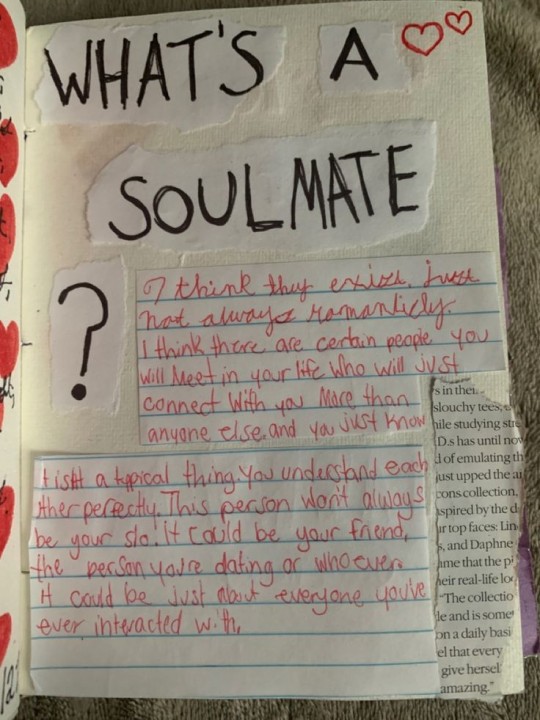 WHAT'S A
SOULMATE
?
I think they exist, just
not always romanticly.
I think there are certain people you
will Meet in your life who will just
connect With you More than
anyone else. and you just know
t isnt a typical thing. You understand each
ther perfectly. This person won't always
be your s/o. it Could be your friend,
the person you're dating or whoever.
it could be just about everyone you've
ever interacted with.
s in thei
slouchy tees,
ile studying stre
D.s has until now
d of emulating th
just upped the a
cons collection,
spired by the d
r top faces: Lin
s, and Daphne
ame that the pi
eir real-life lo
"The collectio
le and is some
on a daily basi
el that every
give hersel
amazing."